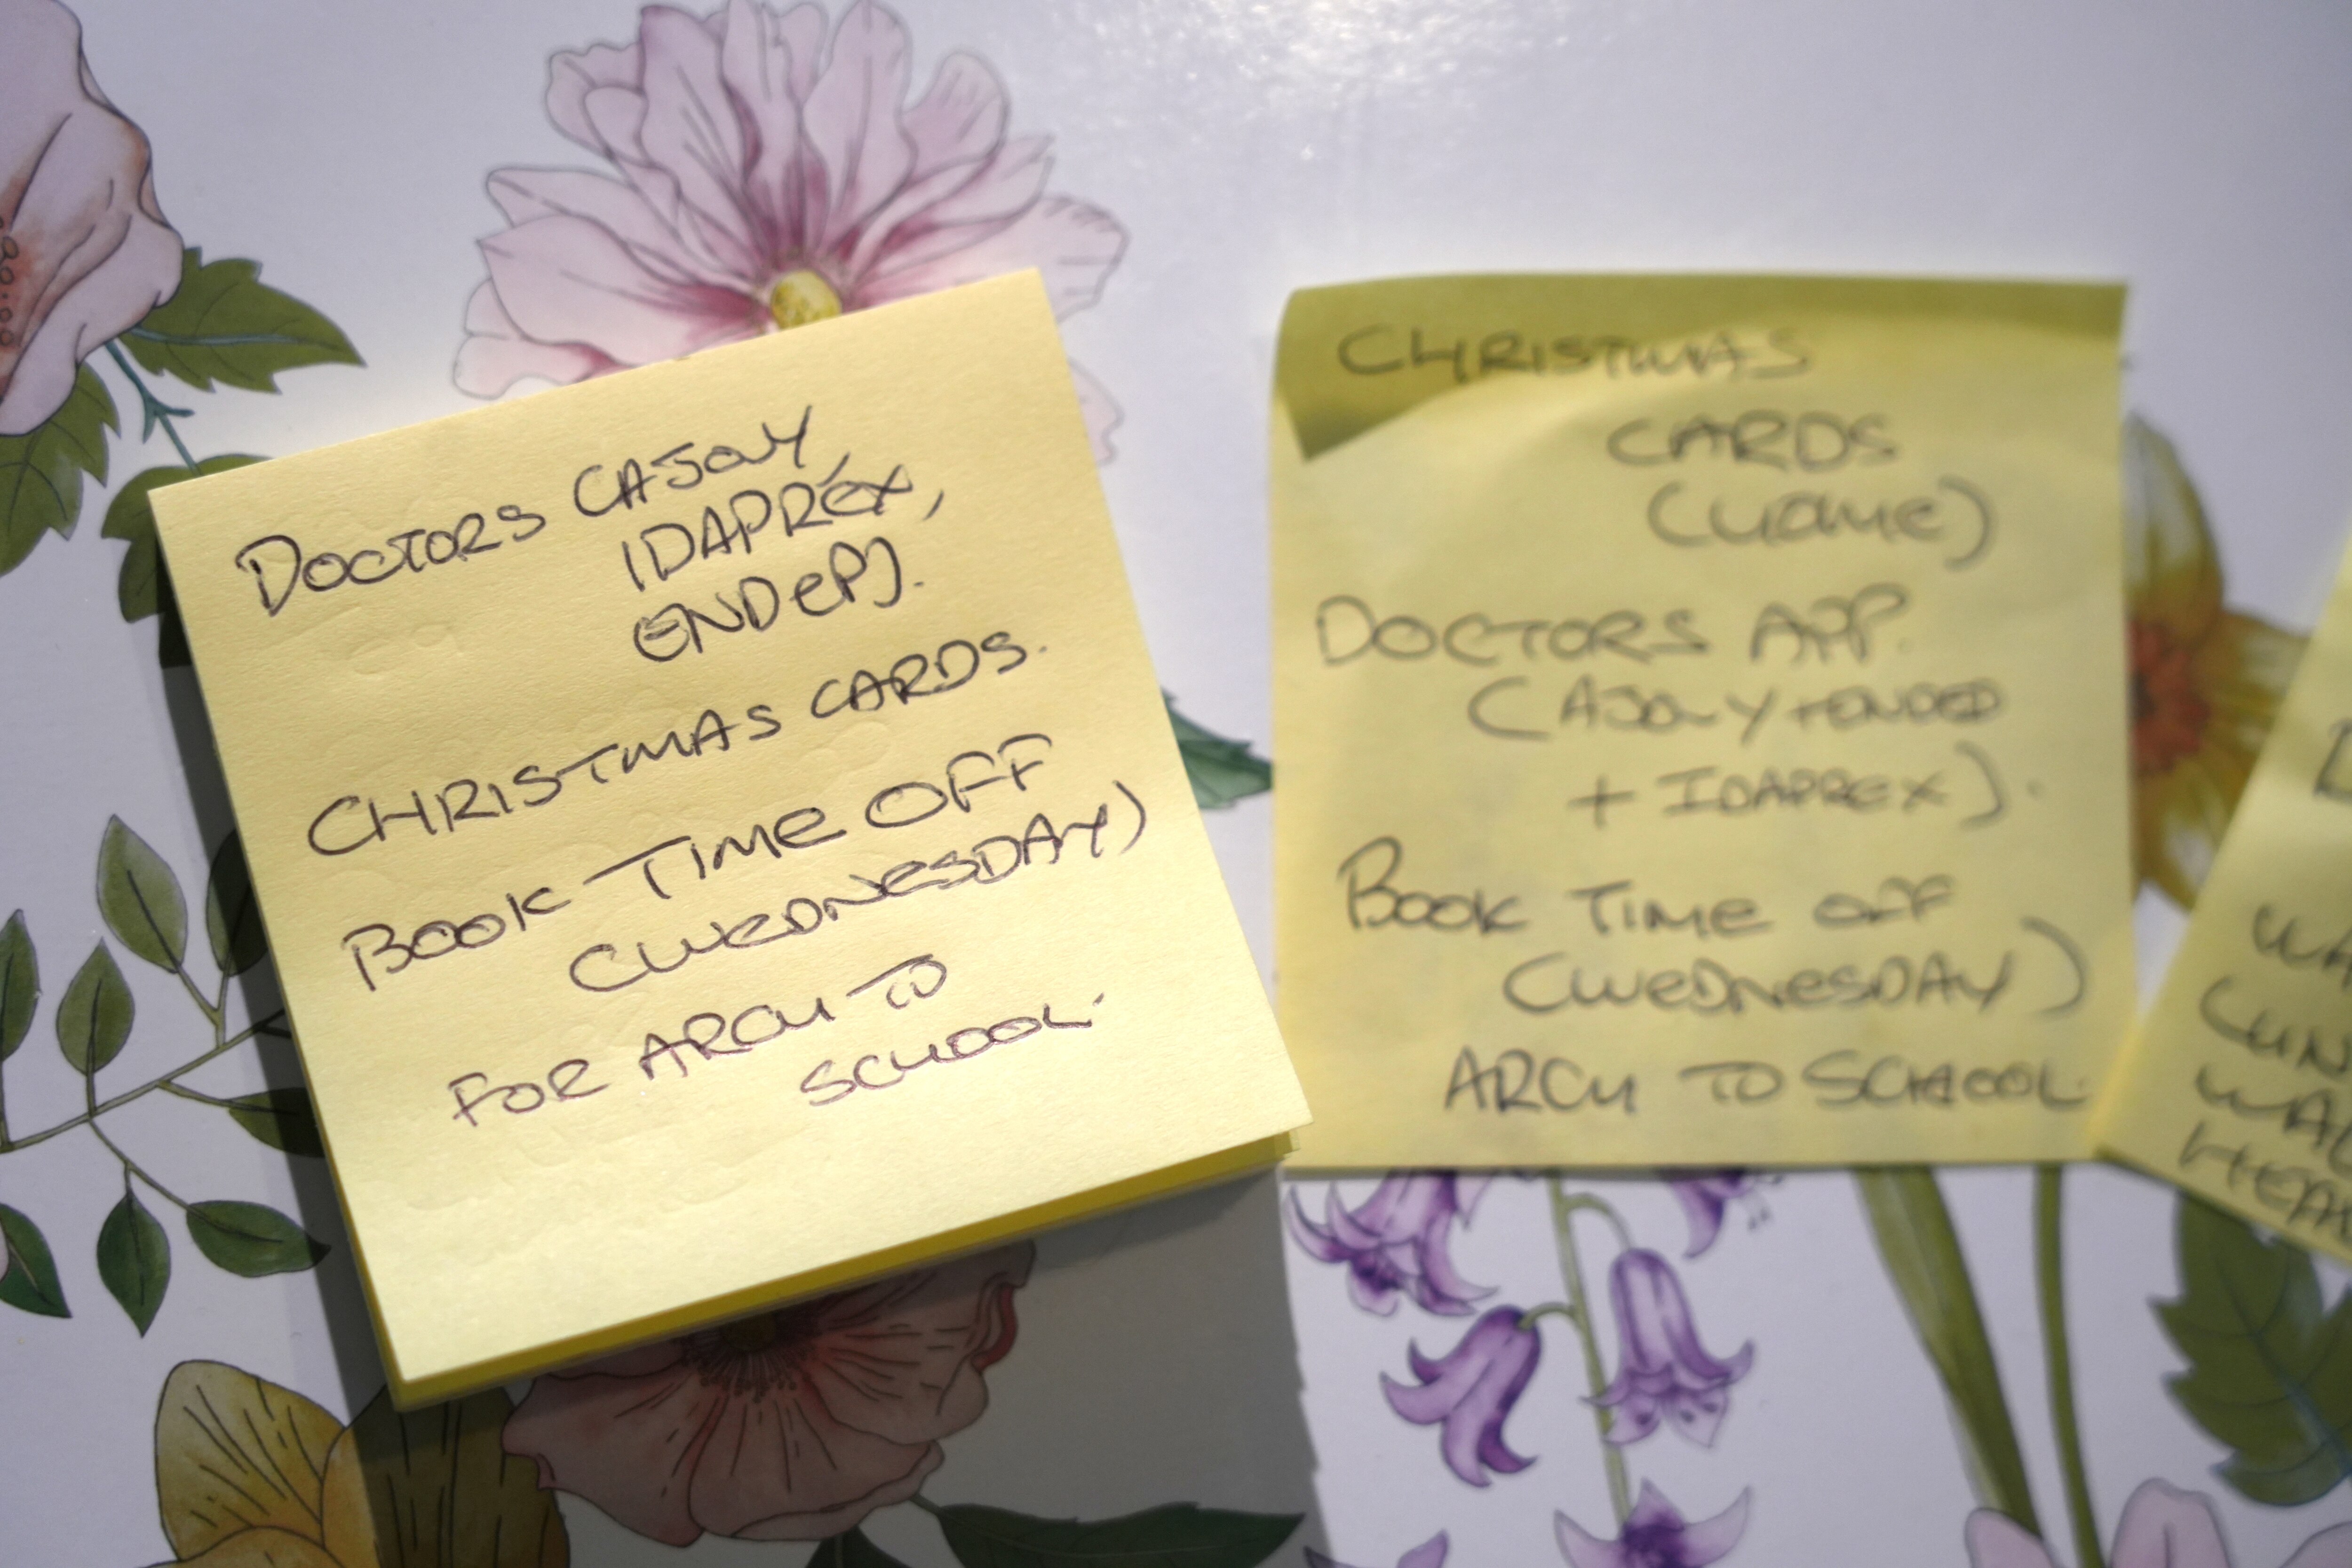 DOCTORS (AJOVY,
IDAPREX,
ENDEP).
CHRISTMAS CARDS.
BOOK TIME OFF
(WEDNESDAY)
FOR ARCH TO
SCHOOL.
CHRISTMAS
CARDS
DOCTORS APP.
(AJOVY
+ IDAPREX).
BOOK TIME OFF
(WEDNESDAY)
ARCH TO SCHOOL.